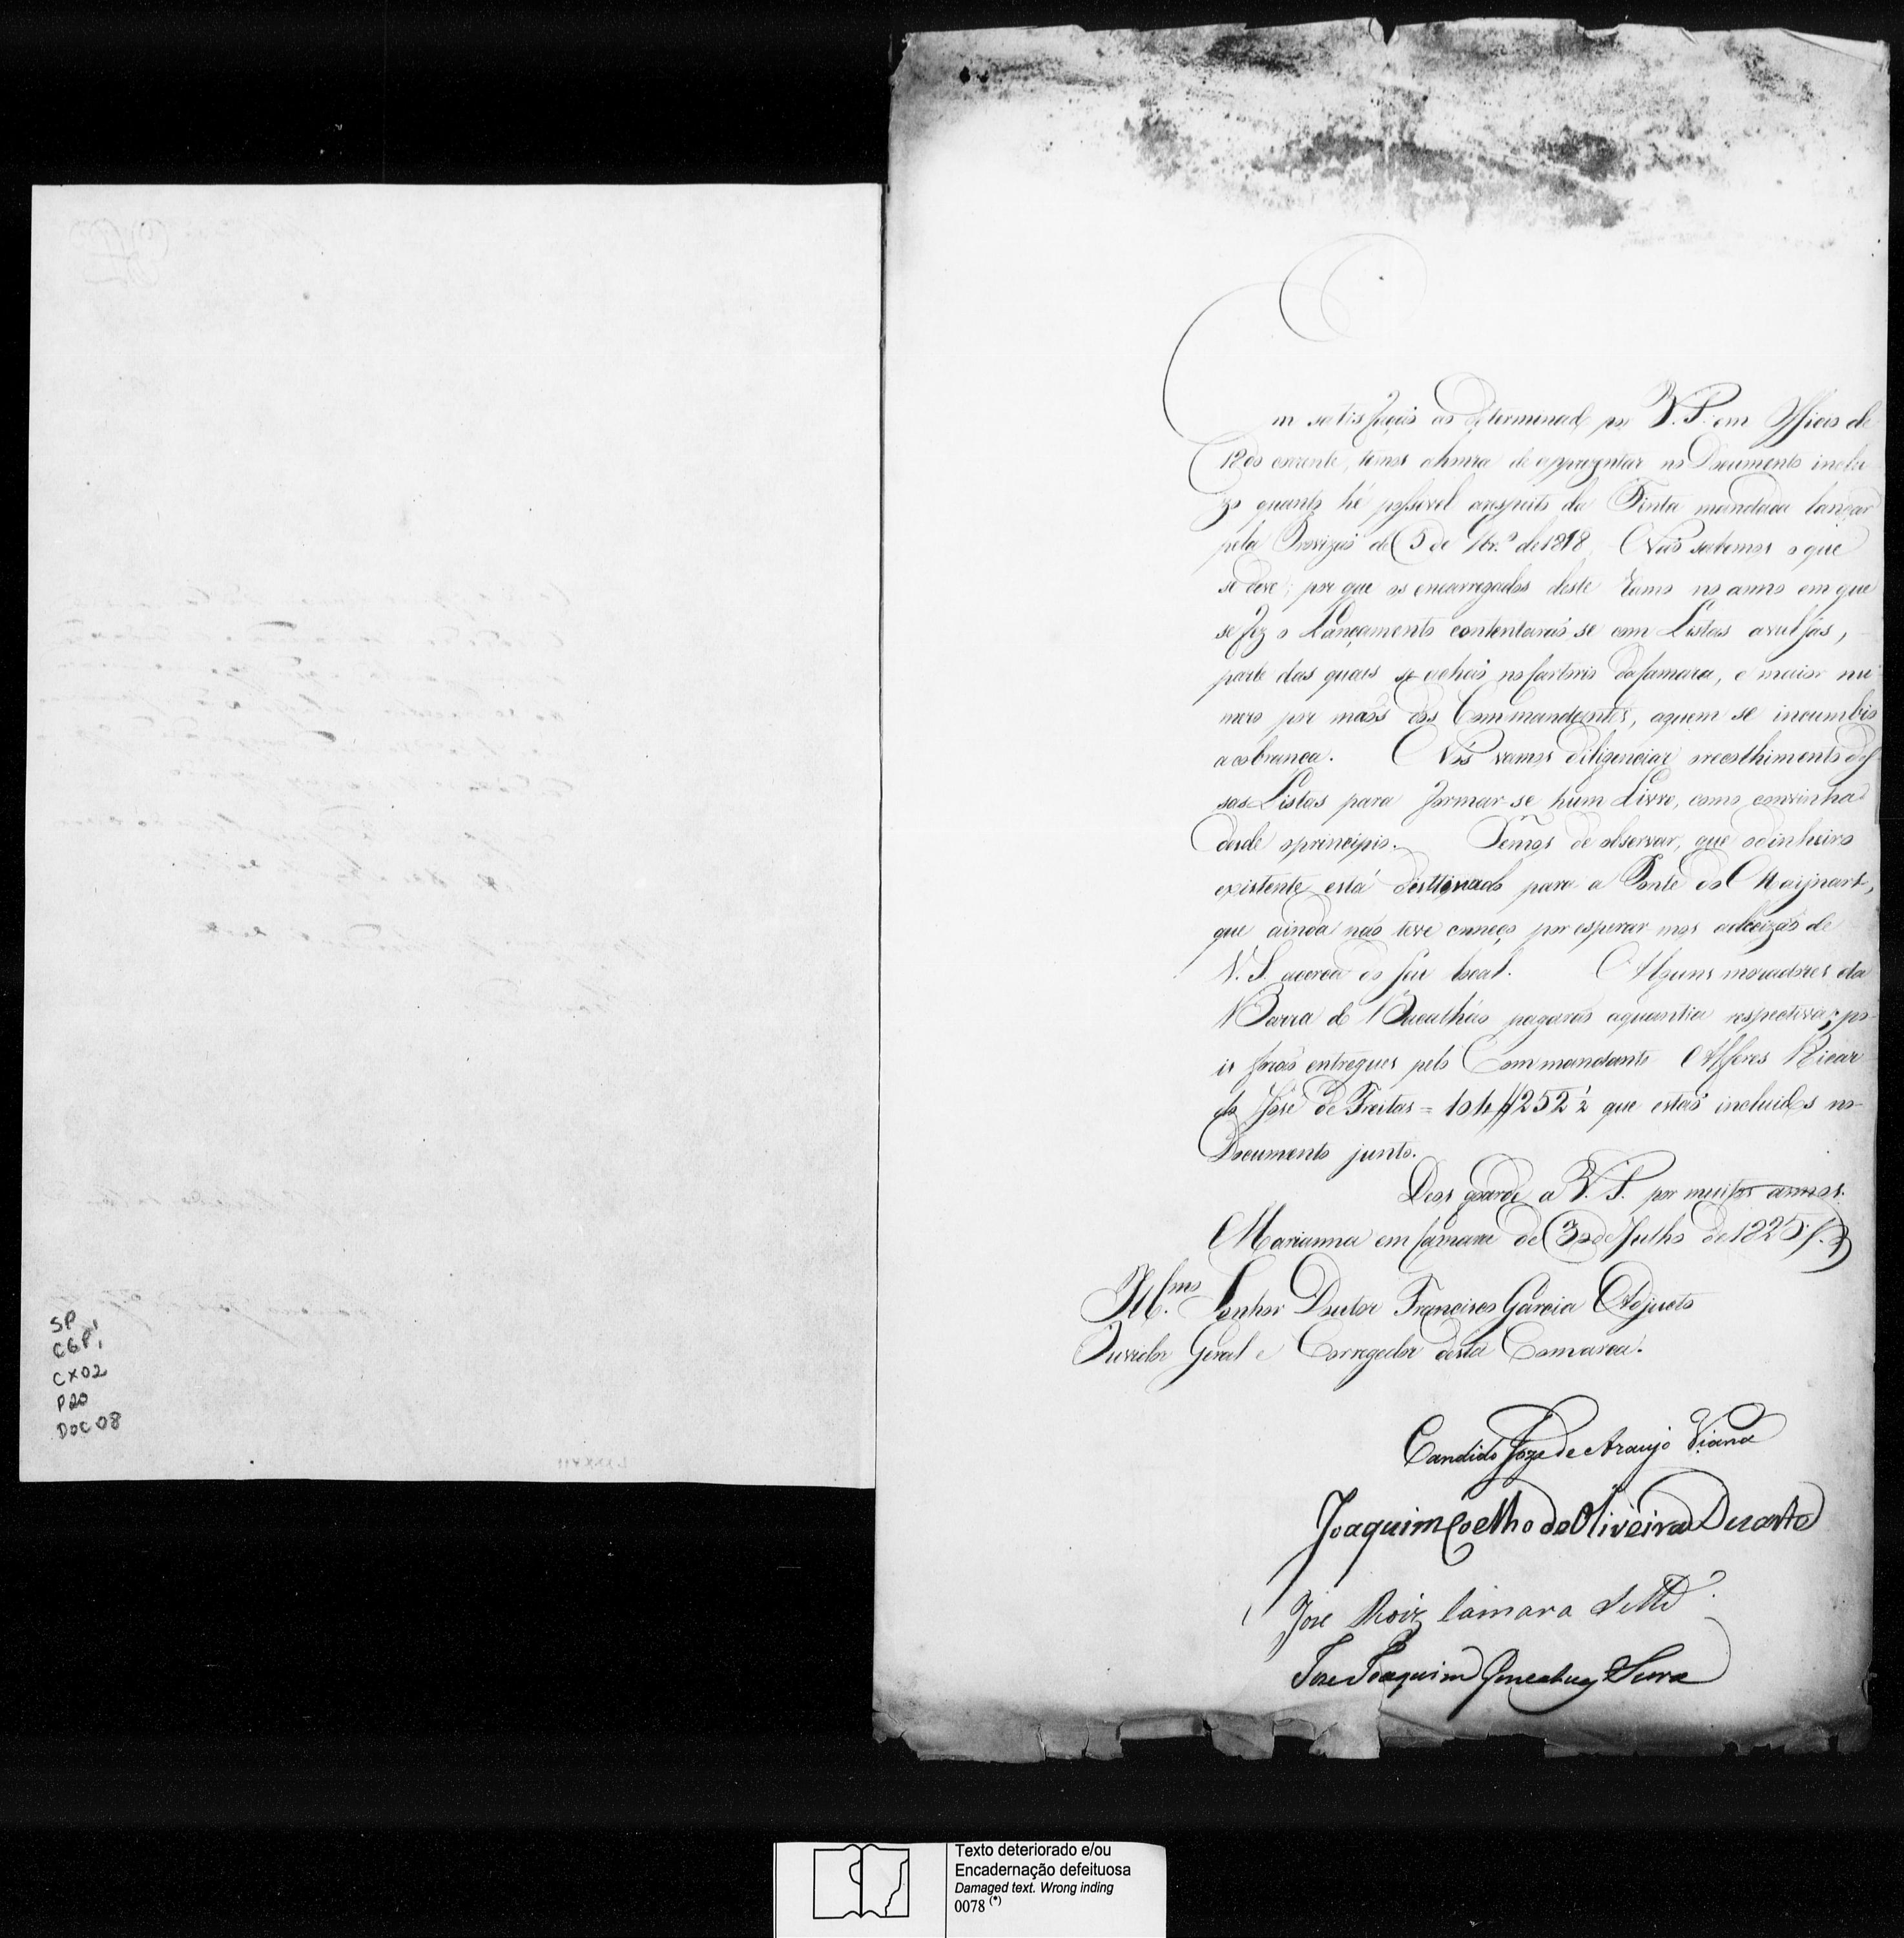 SP
CGP1
CX02
P20
DOC 08
Em satisfaçaõ ao determinado por V. S. em Officio de
12 do corrente, temos ahonra de apprezentar no Documento inclu-
zo quanto hé possivel arespeito da Finta mandada lançar
pela Provizaõ de 5 de 9br.º de 1818. Naõ sabemos o que
se deve; por que os encarregados deste ramo no anno em que
se fez o Lançamento contentaraõ se com Listas avulsas,
parte das quaes se achaõ no Cartorio da Camara, e maior nu-
mero por maõs dos Commandantes, aquem se incumbio
acobrança. Nós vamos diligenciar orecolhimento des-
sas Listas para formar-se hum Livro, como convinha
desde oprincipio. Temos de observar, que odinheiro
existente está desttinado para a Ponte do Maijnart,
que ainda naõ teve começo por esperar mos adecizaõ de
V. S. acerca do seu local. Alguns moradores da
Barra do Bacalháo pagaraõ aquantia respectiva, po-
is foraõ entregues pelo Commandante Alferes Ricar
do José de Freitas = 104//252 ½ que estaõ incluidos no
Documento junto.
Deos guarde a V. S. por muitos annos.
Marianna em Camara de 30 de Julho de 1825
Ill.mo Senhor Doutor Francisco Garcia Adjucto
Ouvidor Geral e Corregedor desta Comarca.
Candido Joze de Araujo Viana
Joaquim Coelho de Oliveira Duarte
Jose Roiz Camara
Jose Joaquim Gonçalves Serra
Texto deteriorado e/ou
Encadernação defeituosa
Damaged text. Wrong inding
0078 (*)